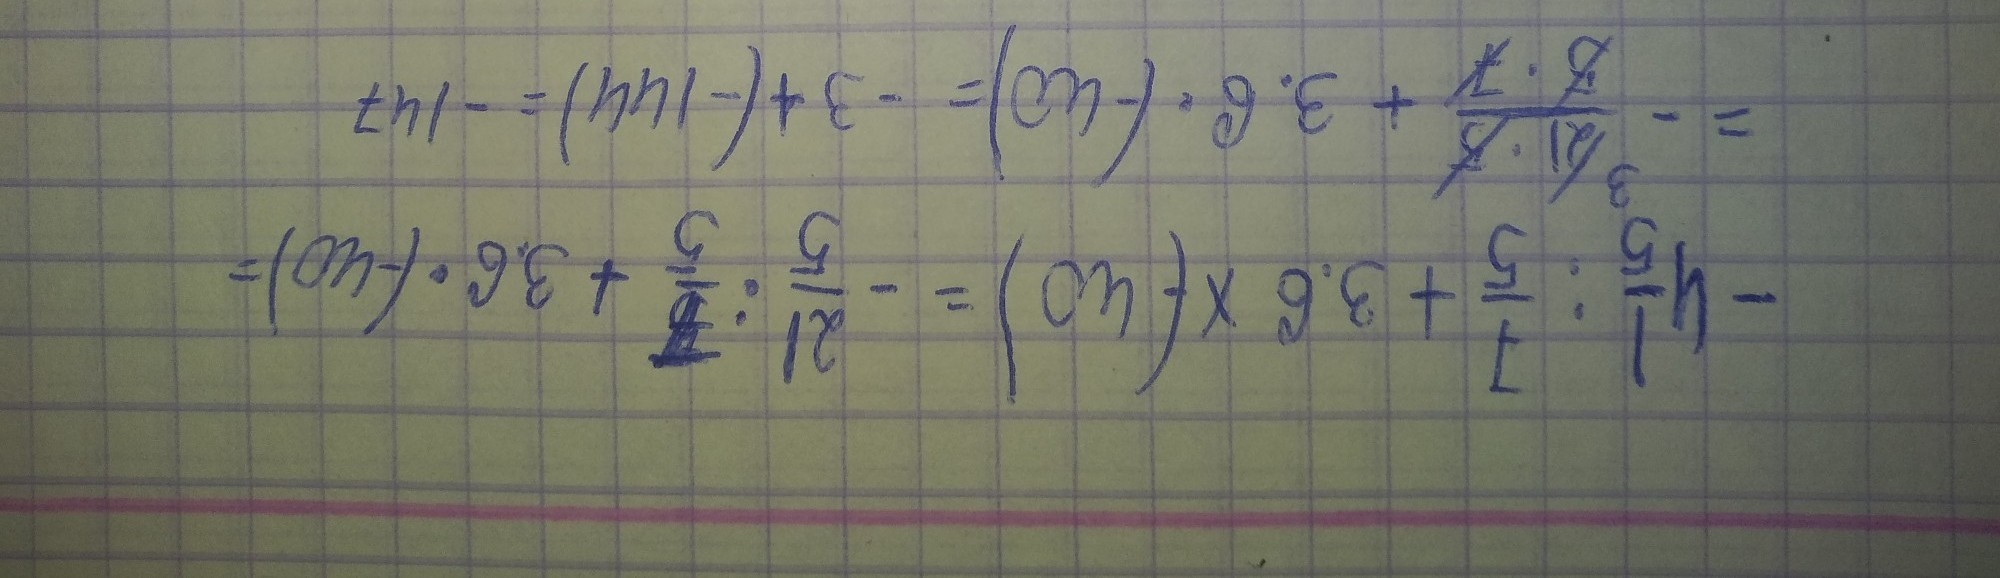 - 4 1/5 : 7/5 + 3.6 × (-40) = - 21/5 : 7/5 + 3.6 · (-40) =
= - 21 · 5 / 5 · 7 + 3.6 · (-40) = - 3 + (-144) = - 147